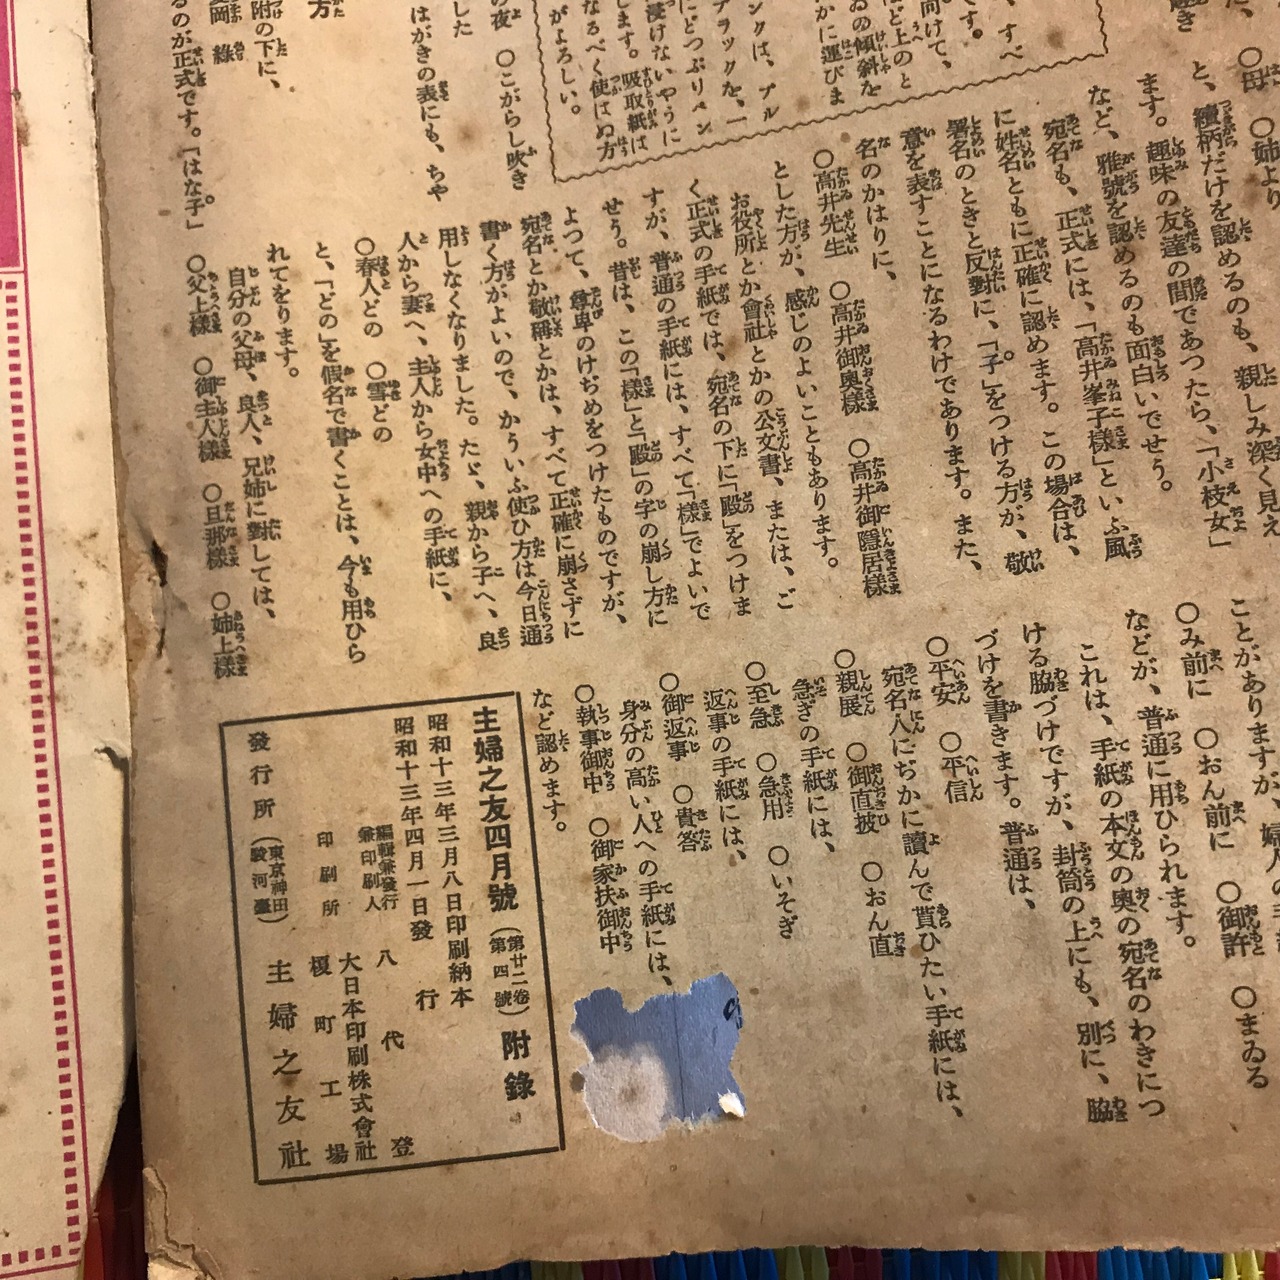 す、すべ
です。
向けて、
にど上のと
ゐの傾斜を
かに運びま
ンクは、ブル
ブラックを、一
にどつぷりペン
浸けないやうに
します。吸取紙は
なるべく使はぬ方
がよろしい。
の夜 〇こがらし吹き
した
はがきの表にも、ちや
方
附の下に、
岡 綠
るのが正式です。「はな子」
〇母 〇姉より
と、續柄だけを認めるのも、親しみ深く見え
ます。趣味の友達の間であつたら、「小枝女」
など、雅號を認めるのも面白いでせう。
宛名も、正式には、「高井峯子樣」といふ風
に姓名ともに正確に認めます。この場合は、
署名のときと反對に、「子」をつける方が、敬
意を表すことになるわけであります。また、
名のかはりに、
〇高井先生 〇高井御奥樣 〇高井御隱居樣
とした方が、感じのよいこともあります。
お役所とか會社とかの公文書、または、ご
く正式の手紙では、宛名の下に「殿」をつけま
すが、普通の手紙には、すべて「樣」でよいで
せう。昔は、この「樣」と「殿」の字の崩し方に
よつて、尊卑のけぢめをつけたものですが、
宛名とか敬稱とかは、すべて正確に崩さずに
書く方がよいので、かういふ使ひ方は今日通
用しなくなりました。たゞ、親から子へ、良
人から妻へ、主人から女中への手紙に、
〇春人どの 〇雪どの
と、「どの」を假名で書くことは、今も用ひら
れてをります。
自分の父母、良人、兄姉に對しては、
〇父上樣 〇御主人樣 〇旦那樣 〇姉上樣
ことがありま
〇み前に 〇おん前に 〇御許 〇まゐる
などが、普通に用ひられます。
これは、手紙の本文の奥の宛名のわきにつ
ける脇づけですが、封筒の上にも、別に、脇
づけを書きます。普通は、
〇平安 〇平信
宛名人にぢかに讀んで貰ひたい手紙には、
〇親展 〇御直披 〇おん直
急ぎの手紙には、
〇至急 〇急用 〇いそぎ
返事の手紙には、
〇御返事 〇貴答
身分の高い人への手紙には、
〇執事御中 〇御家扶御中
など認めます。
主婦之友四月號(第廿二卷第四號)附錄
昭和十三年三月八日印刷納本
昭和十三年四月一日發行
編輯兼發行兼印刷人 八代登
大日本印刷株式會社
印刷所 榎町工場
發行所(東京神田駿河臺)主婦之友社